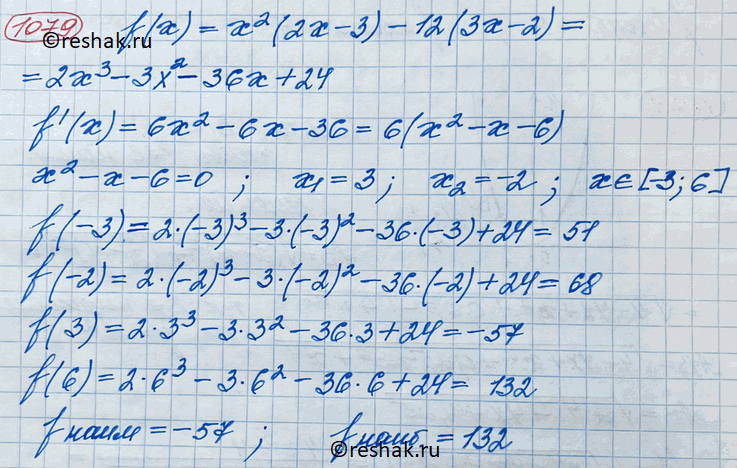 1079 f(x) = x²(2x-3) - 12(3x-2) =
©reshak.ru
= 2x³ - 3x² - 36x + 24
f'(x) = 6x² - 6x - 36 = 6(x² - x - 6)
x² - x - 6 = 0 ; x₁ = 3 ; x₂ = -2 ; x ∈ [-3; 6]
f(-3) = 2·(-3)³ - 3·(-3)² - 36·(-3) + 24 = 51
f(-2) = 2·(-2)³ - 3·(-2)² - 36·(-2) + 24 = 68
f(3) = 2·3³ - 3·3² - 36·3 + 24 = -57
f(6) = 2·6³ - 3·6² - 36·6 + 24 = 132
f наим = -57 ; f наиб = 132
©reshak.ru